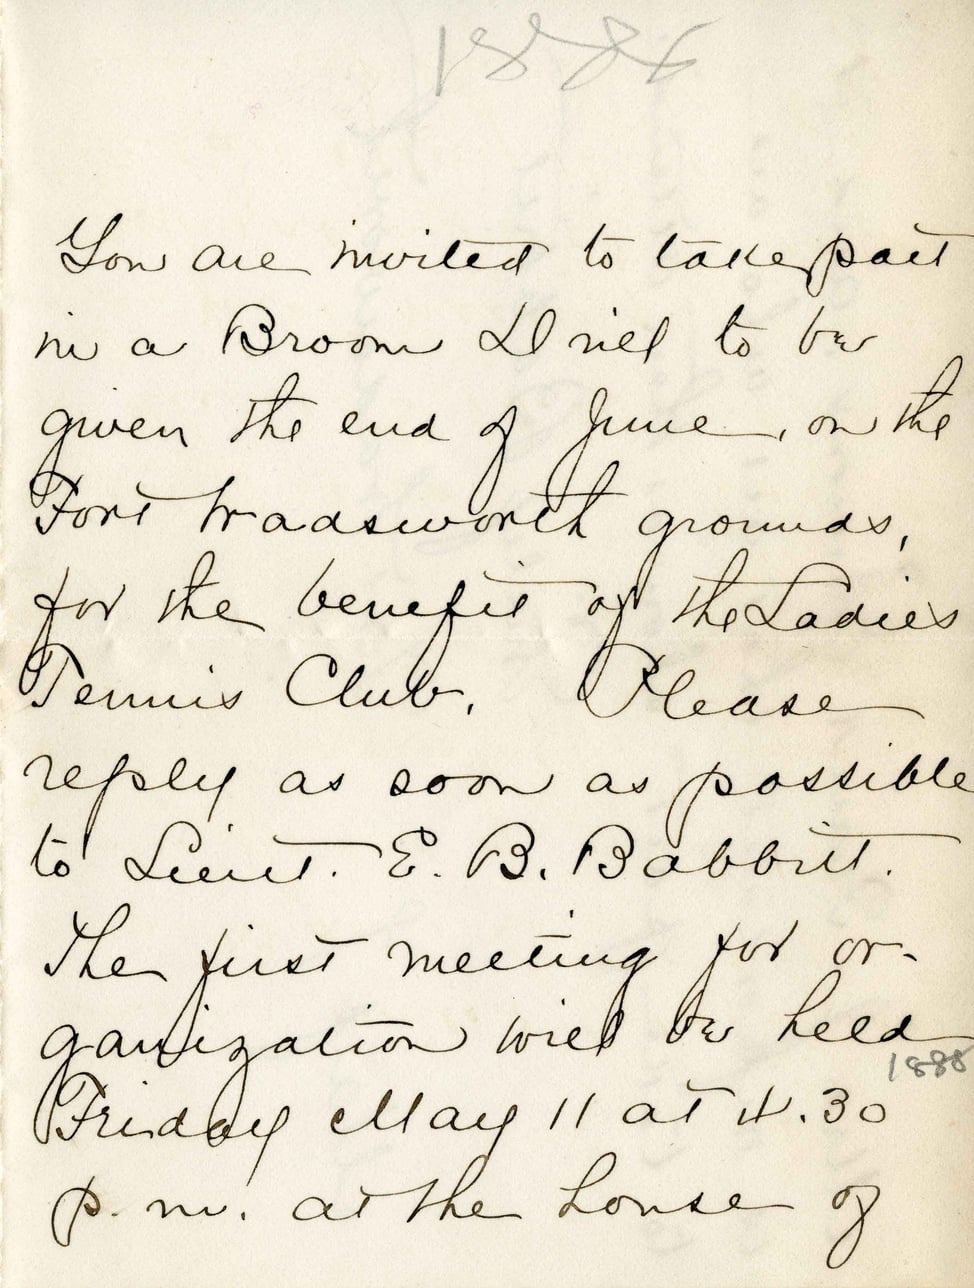 1888
You are invited to take part
in a Broom Drill to be
given the end of June, on the
Fort Wadsworth grounds,
for the benefit of the Ladies
Tennis Club. Please
reply as soon as possible
to Lieut. E. B. Babbitt.
The first meeting for or-
ganization will be held
1888
Friday May 11 at 4.30
p. m. at the house of